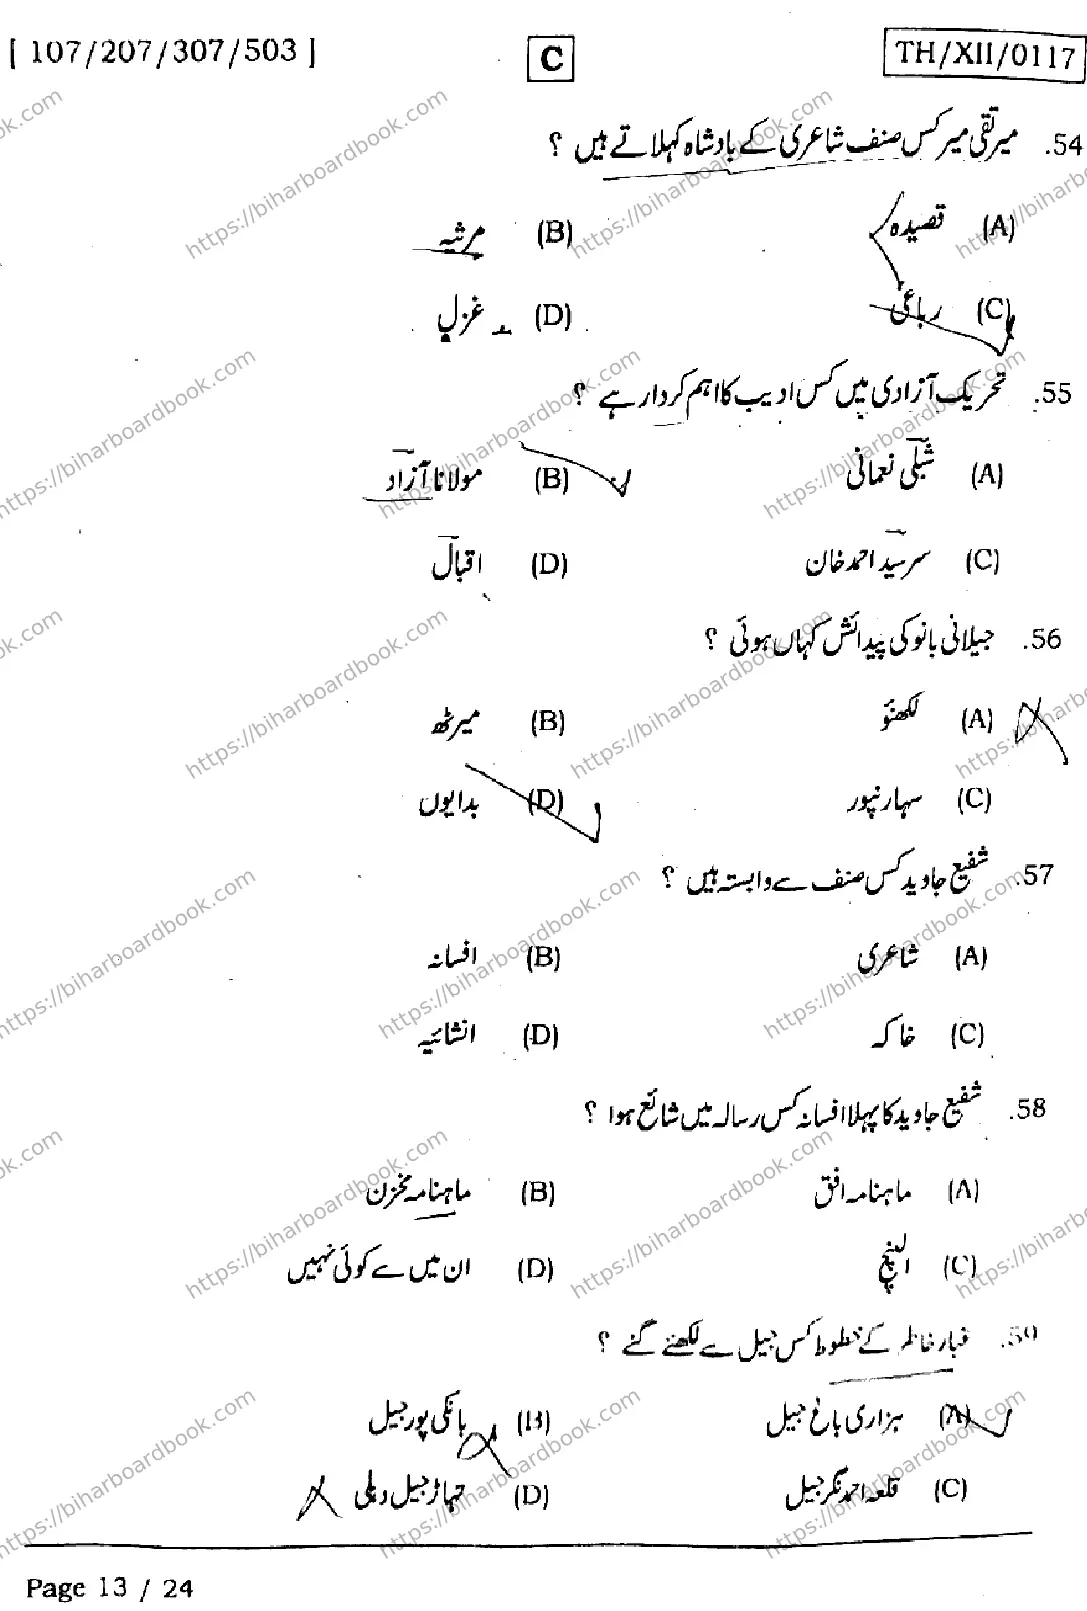 [ 107/207/307/503 ] C TH/XII/0117
54. میر تقی میر کس صنف شاعری کے بادشاہ کہلاتے ہیں ؟
(A) قصیدہ (B) مرثیہ
(C) رباعی (D) غزل
55. تحریک آزادی میں کس ادیب کا اہم کردار ہے ؟
(A) شبلی نعمانی (B) مولانا آزاد
(C) سرسید احمد خان (D) اقبال
56. جیلانی بانو کی پیدائش کہاں ہوئی ؟
(A) لکھنؤ (B) میرٹھ
(C) سہارنپور (D) بدایوں
57. شفیع جاوید کس صنف سے وابستہ ہیں ؟
(A) شاعری (B) افسانہ
(C) خاکہ (D) انشائیہ
58. شفیع جاوید کا پہلا افسانہ کس رسالہ میں شائع ہوا ؟
(A) ماہنامہ افق (B) ماہنامہ مخزن
(C) الپنچ (D) ان میں سے کوئی نہیں
59. غبار خاطر کے خطوط کس جیل سے لکھے گئے ؟
(A) ہزاری باغ جیل (B) بانکی پور جیل
(C) قلعہ احمد نگر جیل (D) تہاڑ جیل دہلی
Page 13 / 24
https://biharboardbook.com